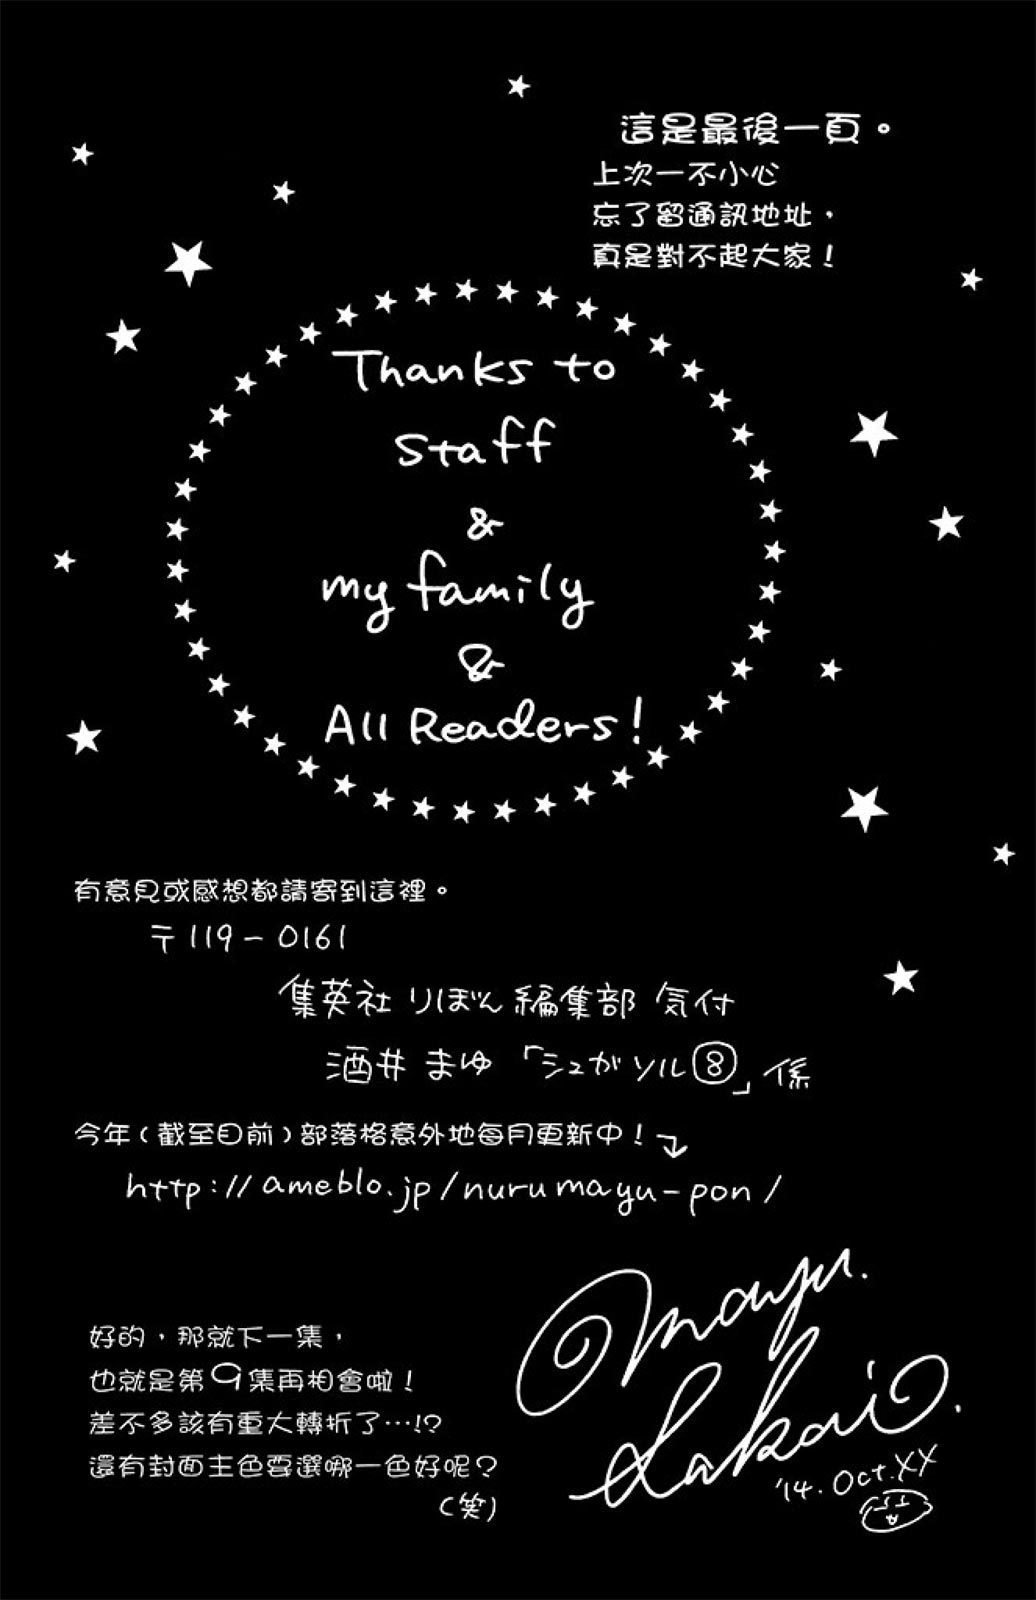 這是最後一頁。
上次一不小心
忘了留通訊地址，
真是對不起大家！
Thanks to
Staff
&
my family
&
All Readers!
有意見或感想都請寄到這裡。
〒119-0161
集英社 りぼん 編集部 気付
酒井 まゆ 「シュガソル⑧」係
今年（截至目前）部落格意外地每月更新中！
http://ameblo.jp/nurumayu-pon/
好的，那就下一集，
也就是第9集再相會啦！
差不多該有重大轉折了…!?
還有封面主色要選哪一色好呢？
（笑）
Mayu.
Sakai.
'14. Oct. XX